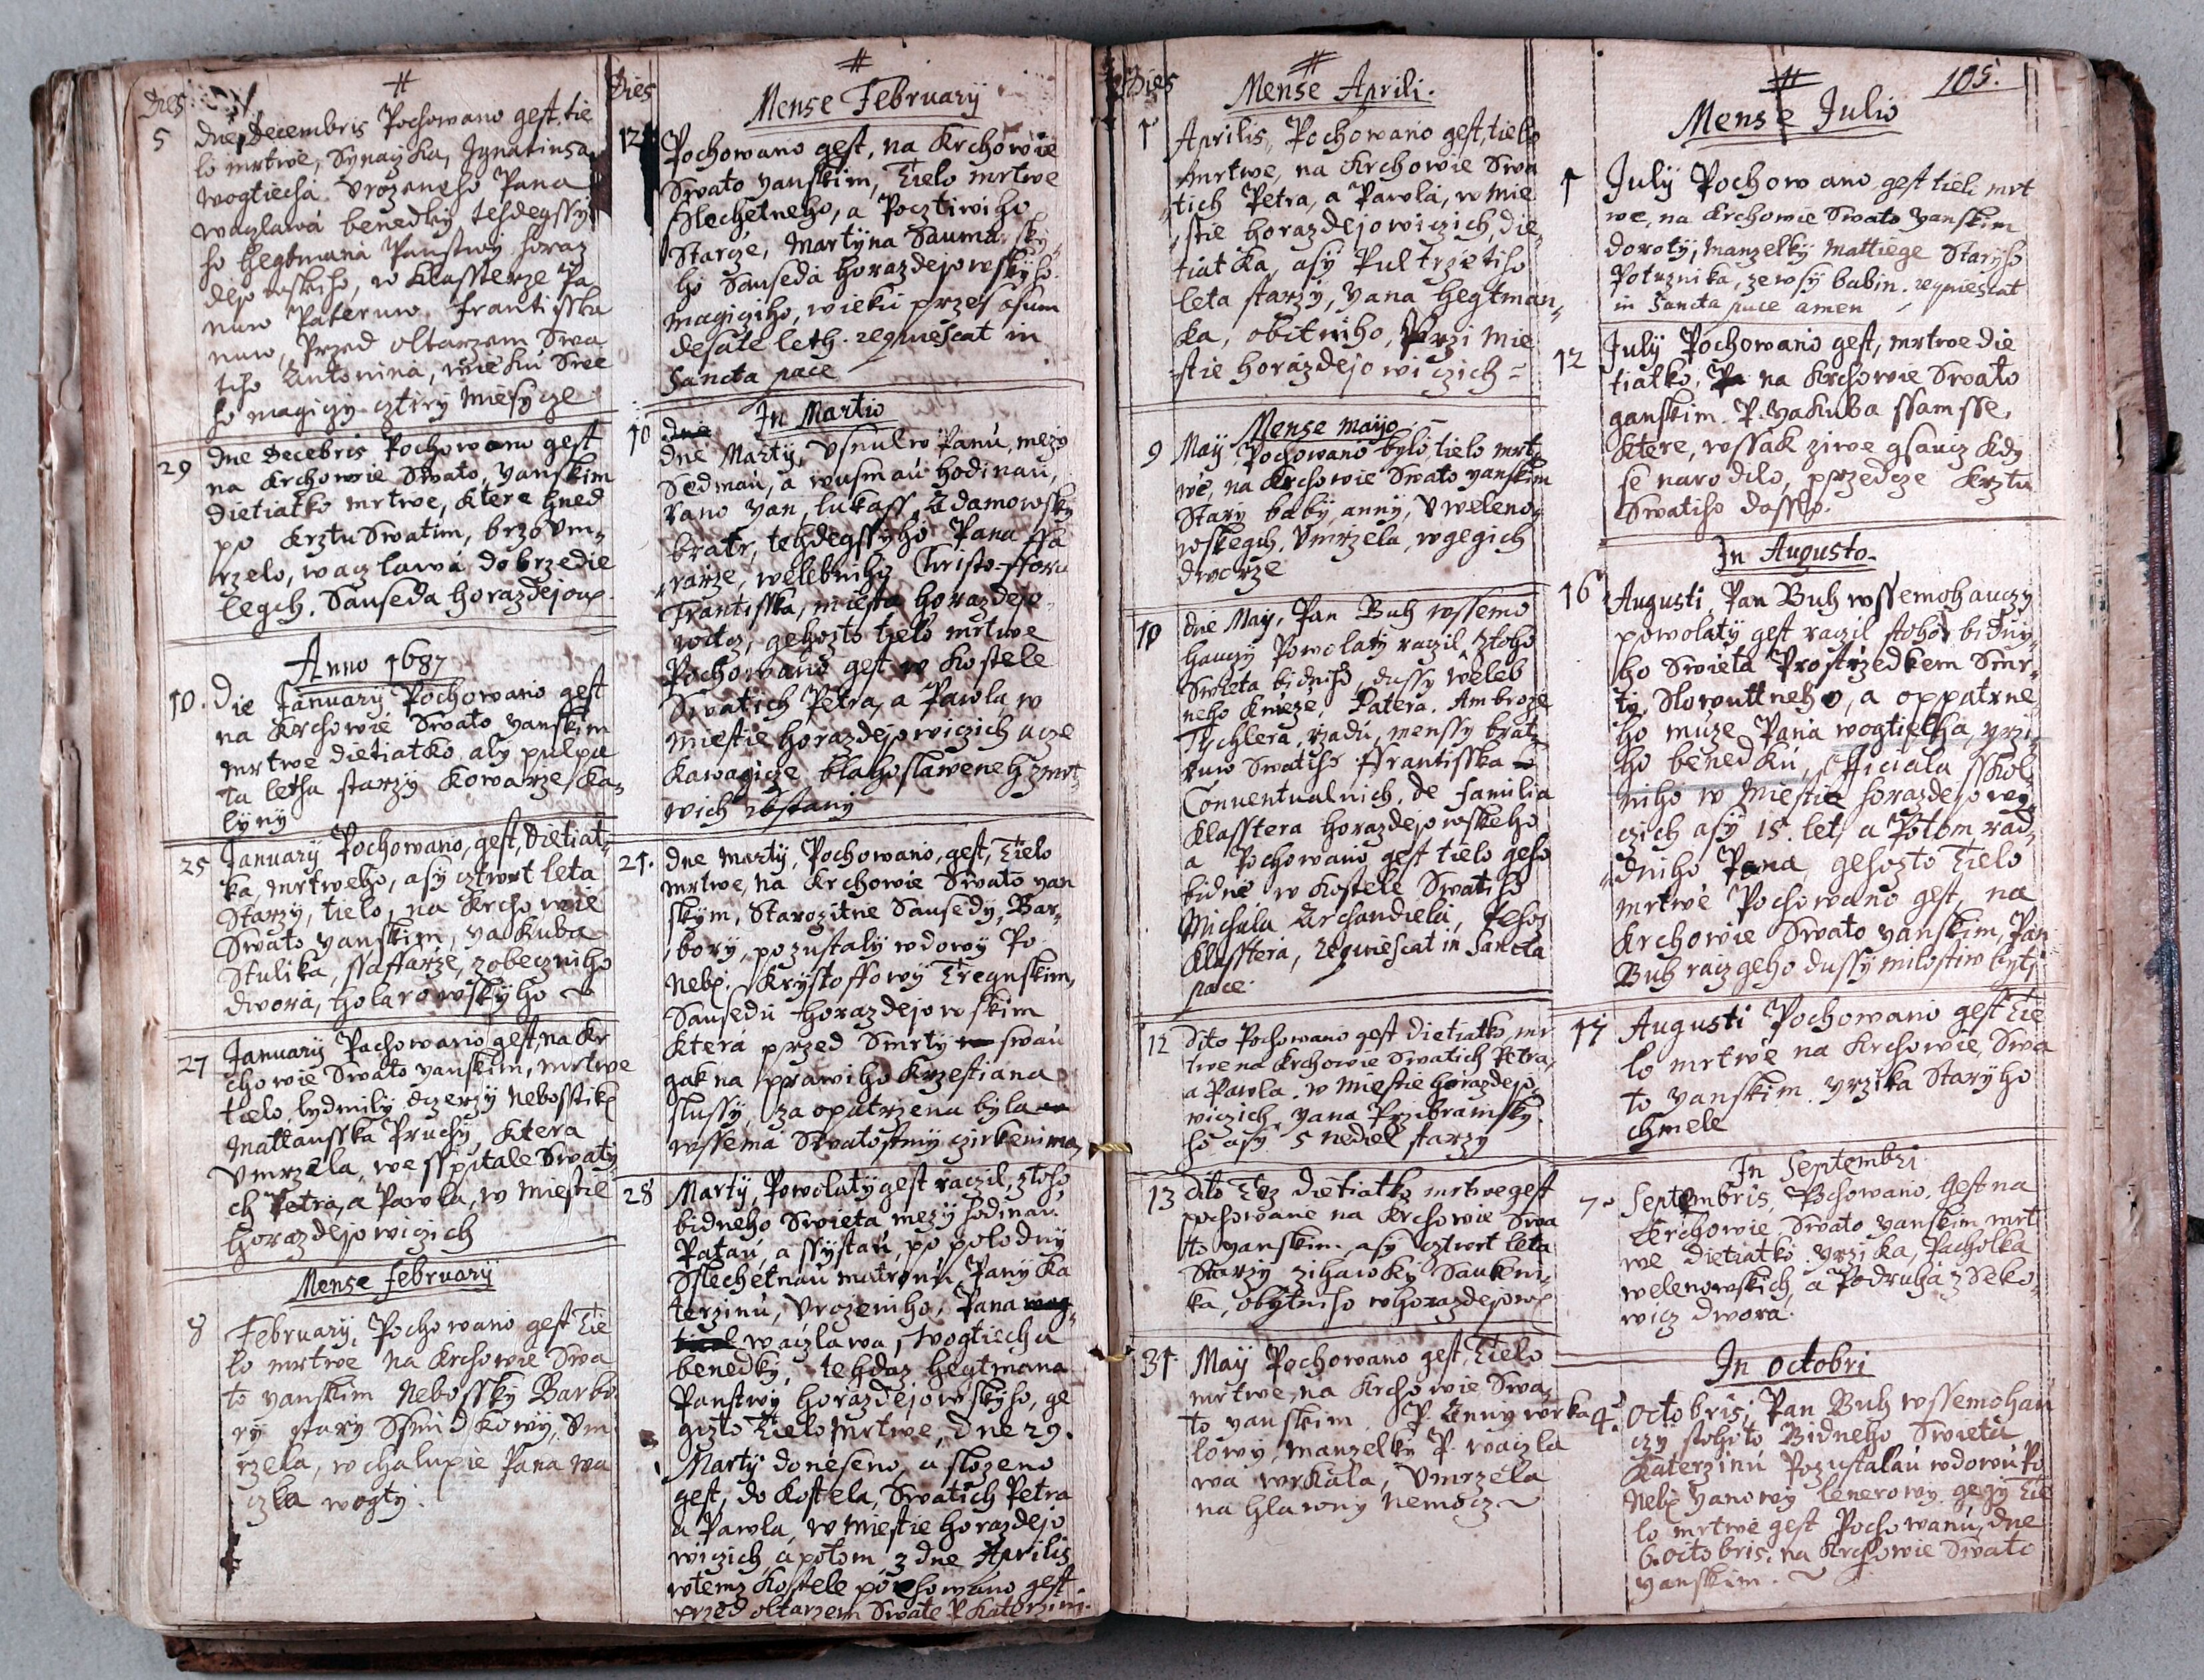 Dies
5 dne Decembris Pochowano gest tie
lo mrtwe, Synacžka, Ignatiusa
Wogtiecha Vrozeneho Pana
Waczlawa benedky tehdegssy
ho Hegtmana Panstwy horaz
dejowskeho, w Klassterze Pa
nuw Pateruw. frantisska
nuw, Przed oltarzem Swa
tiho Antonina, wieku Swe
ho magiczy cztiry Miesycze
29 dne Decebris Pochowano gest
na Krchowie Swato yanskim
dietiatko mrtwe, ktere hned
po krztu Swatim, brzo vm„
rzelo, waczlawa dobrzedie
legch. Sauseda horazdejow.
Anno 1687
10. Die January, Pochowano gest
na Krchowie Swato yanskim
mrtwe dietiatko, asy pul pa
ta letha starzy Kowarze Ka„
lyny
25 January Pochowano, gest, dietiat„
ka, mrtweho, asy cztwrt leta
Starzy, tielo, na Krchowie
Swato yanskim, yakuba
Stulika, ssaffarze, zobeczniho
dwora, holarowskyho
27 January Pochowano gest, na Kr
chowie Swato yanskim, mrtwe
tielo lydmily dczerzy Nebosstik
Mattausska Pruchy, Ktera
vmrzela, we sspitale Swaty„
ch Petra, a Pawla, w Miestie
horazdejowiczich
Mense february
8 February, Pochowano gest Tie
lo mrtwe na Krchowie Swa
to yanskim Nebossky Barbo
ry stary Ssmidkowy, vm
rzela, w chalupie Pana Wa
czla wogty.
Dies
Mense February
12 Pochowano gest, na Krchowie
Swato yanskim, Tielo mrtwe
Slechetneho, a Pocztiwiho
Starcze, Martyna Sauma„sky
ho Sauseda horazdejowskyho
magiciho, wieku przes osum
desate leth. requiescat in
Sancta pace
In Martio
10 dne Marty, Vsnul w Panu, mezy
Sedmau, a wusmau hodinau,
rano yan, lukass, Adamowsky
bratr, tehdegssyho Pana ffa
„rarze, welebniho Christo-ffora
Frantisska, miesta horazdejo„
wicz, gehozto tielo mrtwe
Pochowano gest w Kostele
Swatich Petra, a Pawla w
Miestie horazdejowiczich acze
kawagicze blahoslaweneh zmrt„
wich wstany
21. dne Marty, Pochowano, gest, Tielo
mrtwe, na Krchowie Swato yan
skym, Starozitne Sausedy, Bar„
„bory, pozustaly wdowy Po
Neb. Krystoffowy Tregnskim,
Sausedu horazdejowskim
Ktera przed Smrty swau
gak na prawiho Krzestiana
slussy, za opatrzena byla
wssema Swatostmy cirkenima
28 Marty, Powolaty gest raczil, ztoho
bidneho Swieta mezy hodinau
Patau, a ssystau, po poledny
Sslechetnau matronu, Pany Ka
terzinu, Vrozeniho, Pana
waczlawa, Wogtiecha
benedky, tehdaz hegtmana
Panstwy horazdejowskyho, ge
gizto Tielo mrtwe, dne 29.
Marty doneseno, a slozeno
gest, do Kostela, Swatich Petra
a Pawla, w Miestie horazdejo
wiczich, a potom 3 dne Aprilis
wtemz Kostele pochowano gest
przed oltarzem Swate P. Katerziny.
Dies
Mense Aprili.
1 Aprilis, Pochowano gest, tielo
mrtwe, na Krchowie Swa
„tich Petra, a Pawla, w Mie
„stie horazdejowiczich, die„
tiatka, asy Pul trzetiho
leta starzy, Yana Hegtman„
ka, obitniho, Przi Mie
stie horazdejowiczich
Mense mayo
9 May Pochowano bylo, tielo mrt„
we, na Krchowie Swato yanskim
Stary baby anny, V weleno„
wskegch, Vmrzela, w gegich
dworze
10 dne May, Pan Buh wssemo
hauczy Powolaty raczil, ztoho
Swieta bidniho, dussy weleb
neho Knieze, Patera. Ambroze
Tychlera, rzadu, menssy bratr
ruw Swatiho ffrantisska
Conuentualnich, de familia
Klasstera horazdejowskeho
a Pochowano gest tielo geho
bidne w Kostele Swatiho
Michala Archandiela, tehoz
Klasstera, requiescat in Sancta
pace.
12 Dito Pochowano gest dietiatko, mr
twe na Krchowie Swatich Petra,
a Pawla, w Miestie horazdejo„
wiczich, Yana Przibramsky
ho asy 5 nediel starzy
13 dito Tez dietiatko mrtwe gest
pochowane na Krchowie Swa
to yanskim, asy cztwrt leta
Starzy zihawky Saukeni„
ka, obytniho w horazdejow
31. May Pochowano gest, Tielo
mrtwe, na Krchowie Swa„
to yanskim. P. Anny wrka
lowy, Manzelky P. waczla
wa wrkala, Vmrzela
na hlawny nemocz
105.
Mense Julio
1 July Pochowano gest tielo mrt
we, na Krchowie Swato yanskim
doroty, Manzelky Mattiege Staryho
Potuznika, ze wsy babin. requiescat
in Sancta pace amen
12 July Pochowano gest, mrtwe die
tiatko, na Krchowie Swato
ganskim. P. yakuba ssamsse,
Ktere, wssak ziwe gsaucz kdy
se narodilo, przedcze Krztu
Swatiho dosslo.
In Augusto.
16 Augusti, Pan Buh wssemohauczy
powolaty gest raczil stoho bidny„
ho Swieta Prostrzedkem Smr„
ty, Slowuttneho, a oppatrne
ho muze Pana wogtiecha, yrzi„
ho benedku, Officiala sskol„
niho w Miestie horazdejowy„
czich asy 15. let, a Potom rad„
„dniho Pana, gehozto Tielo
mrtwe Pochowano gest, na
Krchowie Swato yanskim, Pan
Buh racz geho dussy milostiw byti
17 Augusti Pochowano gest Tie
lo mrtwe na Krchowie, Swa
to yanskim. yrzika Staryho
chmele
In Septembri
7. Septembris, Pochowano, gest na
Krchowie, Swato yanskim mrt
we dietiatko yrzika, Pacholka
welenowskich, a Podruha z Seko„
wicz dwora.
In octobri
4. octobris, Pan Buh wssemohau
czy stohoto Bidneho Swieta
Katerzinu Pozustalau wdowu Po
Neb. Yanowy lenerowy. gegy Tie
lo mrtwe gest Pochowanu, dne
6. octobris, na Krchowie Swato
yanskim.